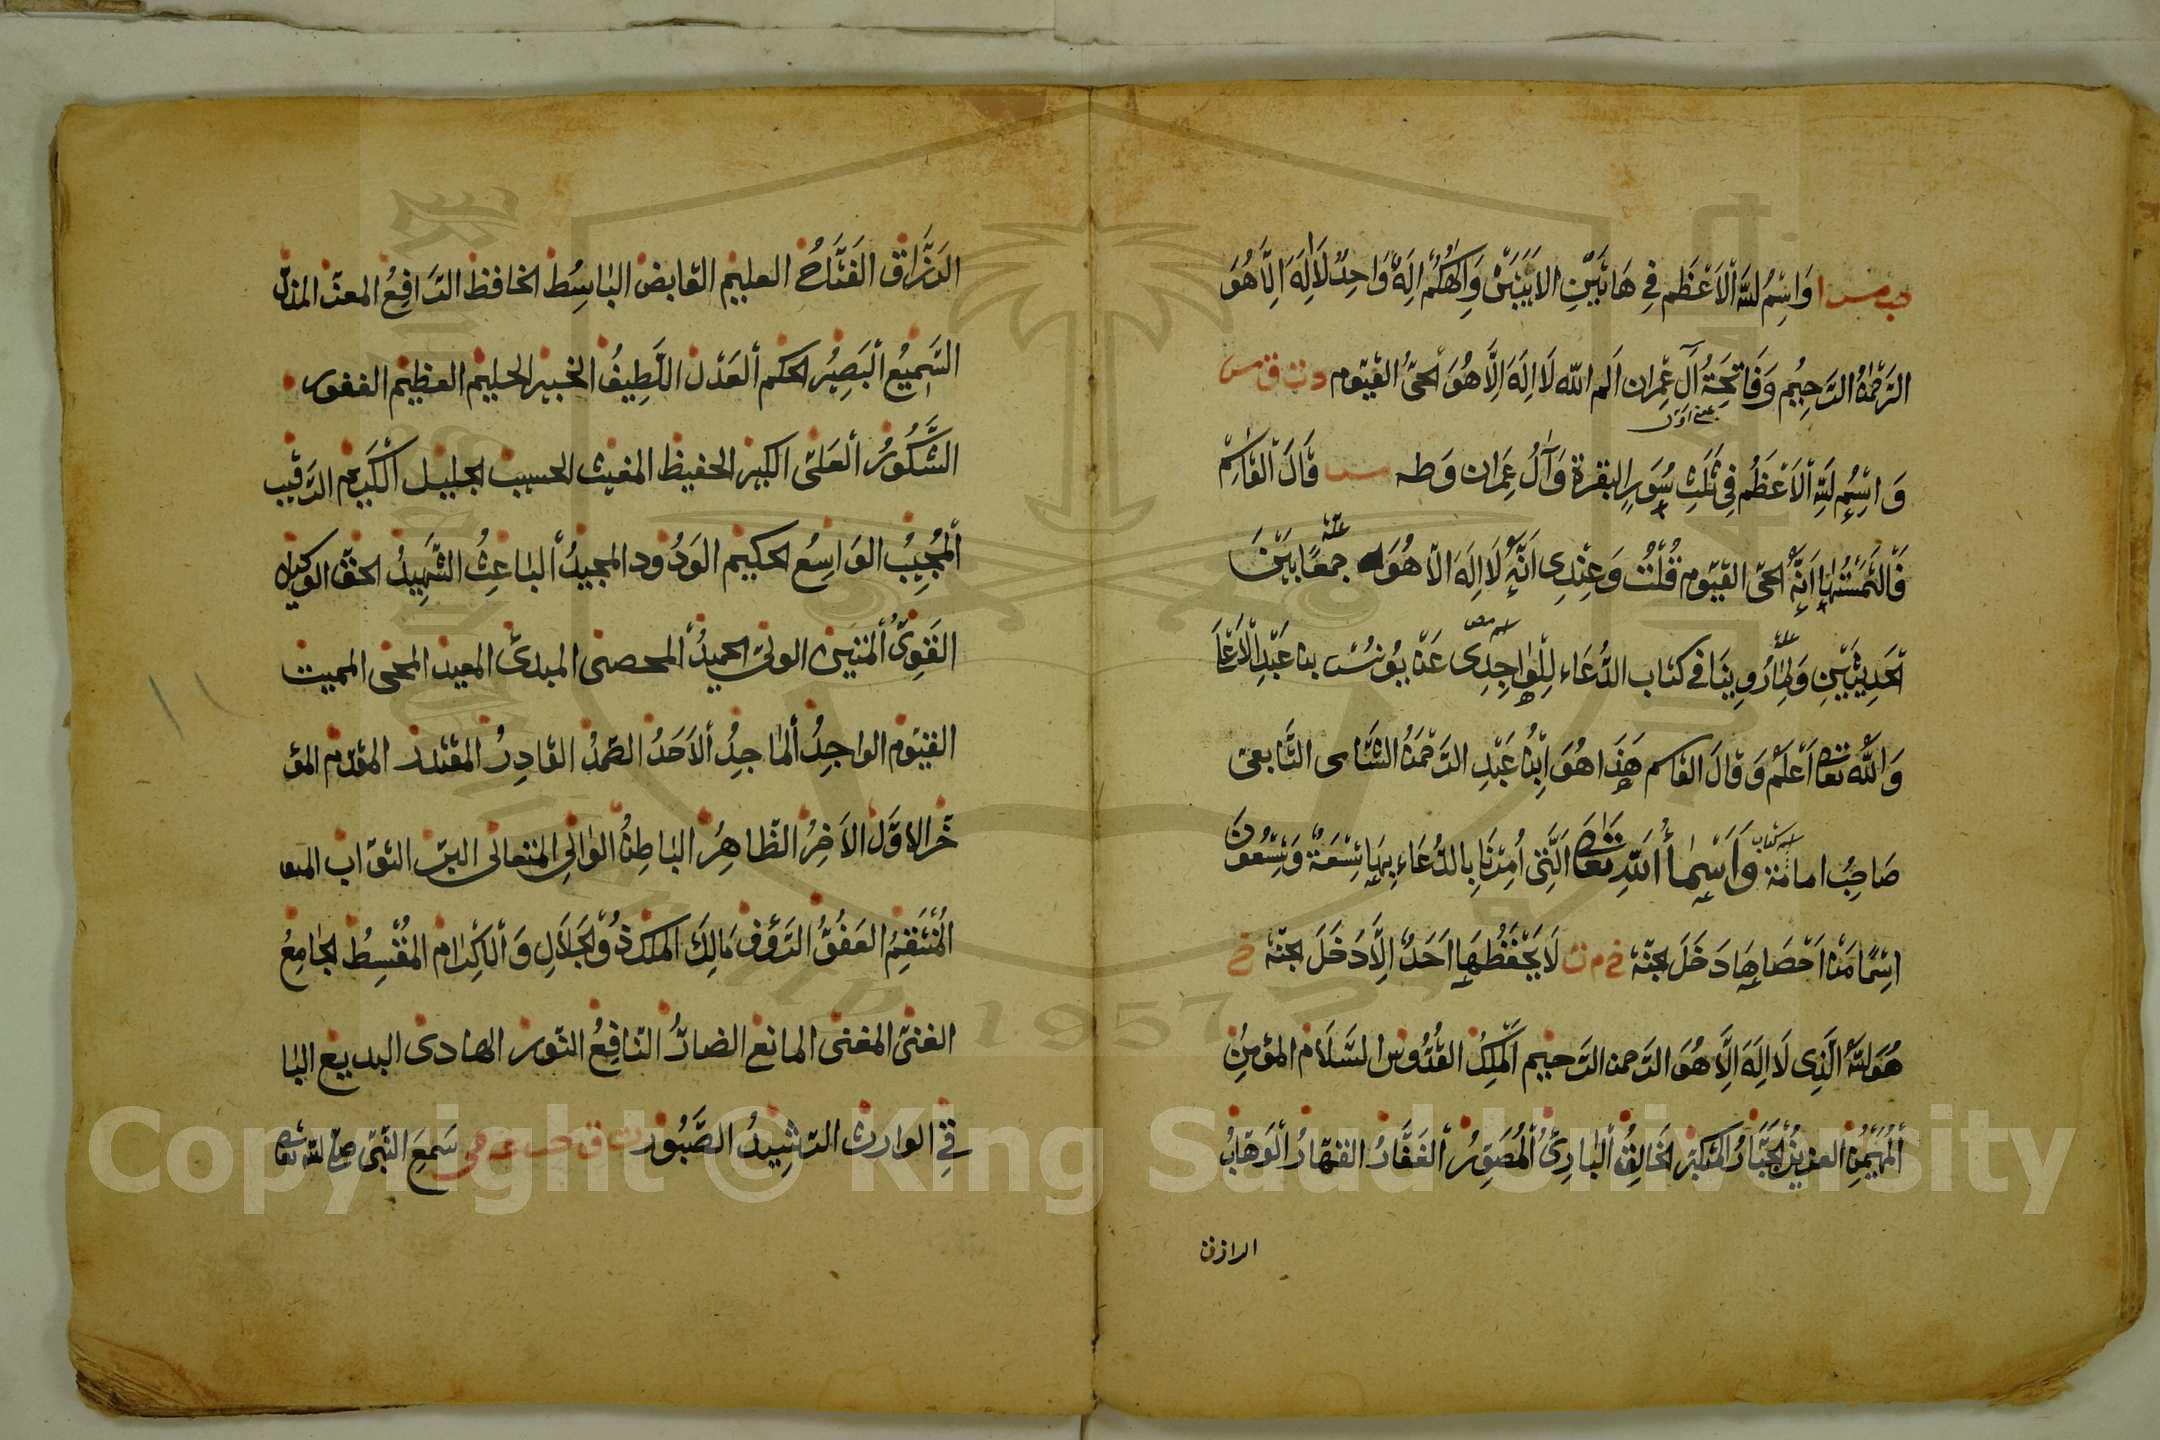 حب مس ا وَاسْمُ اللّٰهِ الْاَعْظَم فِي هَاتَيْنِ الاٰيَتَيْن وَاِلٰهُكُمْ اِلٰهٌ وَاحِدٌ لَا اِلٰهَ اِلَّا هُوَ
الرَّحْمٰنُ الرَّحِيْمُ وَفَاتِحَةُ آلِ عِمْرٰن الم اللّٰه لَا اِلٰهَ اِلَّا هُوَ الحَيُّ القَيُّوم د ت ق مص
وَاسْمُ اللّٰهِ الْاَعْظَمُ فِي ثَلٰثِ سُوَرٍ البقرة وَآلُ عِمْرَان وَطه مس قَالَ الْقَاسِمُ
فَالْتَمَسْتُهَا اَنَّهُ الحَيّ القَيّوم قُلْتُ وَعِنْدِى اَنَّهُ لَا اِلٰهَ اِلَّا هُوَ جمعًا بَيْنَ
الحَدِيْثَيْنِ وَلِمَا رُوِيْنَا فى كتاب الدُّعَاء لِلْوَاحِدِى عَنْ يُونُسَ بن عَبْدِ الْاَعْلَى
وَاللّٰهُ تعالى اَعْلَمُ وَقَالَ القاسم هٰذَا هُوَ اِبْنُ عَبْدِ الرَّحْمٰنُ الشَّامى التَّابعى
صَاحِبُ امامة وَاَسْمَاءُ اللّٰهِ تَعَالٰى الَّتِى اُمِرْنَا بِالدُّعَاءِ بِهَا تِسْعَةٌ وَتِسْعُونَ
اسْمًا مَنْ اَحْصَاهَا دَخَلَ الجَنَّةَ خ م ت لَا يَحْفَظُهَا اَحَدٌ اِلَّا دَخَلَ الجَنَّةَ خ
هُوَ اللّٰهُ الَّذِى لَا اِلٰهَ اِلَّا هُوَ الرَّحمن الرَّحيْم الْمَلِكُ القُدُّوسُ السَّلَامُ المؤْمِنُ
الْمُهَيْمِنُ العزيزُ الجَبَّارُ المُتَكَبِّر الخَالِقُ الْبَارِئُ الْمُصَوِّرُ الْغَفَّارُ القَهَّارُ الْوَهَّابُ
الرازق
الرَزَّاق الفَتَّاحُ العليم القَابض البَاسِطُ الخافظ الرَّافِعُ المعزّ المذلّ
السَّمِيْعُ الْبَصِيْرُ الحكم الْعَدْلُ اللَّطِيفُ الخبير الحليم العظيم الغفور
الشَّكُورُ الْعَلىّ الكبير الحفيظ المغيث الحسيب الجليل الكَرِيم الرَّقيب
الْمُجِيْبُ الوَاسِعُ الحكيم الوَدُود المجيدُ البَاعِثُ الشَّهِيْدُ الحَقّ الوَكيل
القَوِىُّ الْمَتِيْن الولىّ الحَمِيدُ الْمحصى المبدئ المعيد المحى المميت
القيّوم الواجِدُ المَاجِدُ الْاَحَدُ الصَّمَدُ القَادِرُ المقتدر المقَدِّم المؤ
خِّر الاوَّل الاٰخِرُ الظَّاهِرُ البَاطِنُ الوَالِى المتعالى البرّ التَّوّاب
الْمُنْتَقِمُ العَفُوُّ الرَّؤُف مَالِكَ الملك ذُو الْجَلَالِ وَالْاِكْرَام المُقْسِطُ الجَامِعُ
الغنىّ المغنى المانع الضارُّ النَّافِعُ النّور الهادى البديع البَا
قِى الوارث الرَّشِيْدُ الصَّبُور ت ق حب مس سَمِعَ النَّبِىّ صلى الله تعالى
Copyright © King Saud University
1957